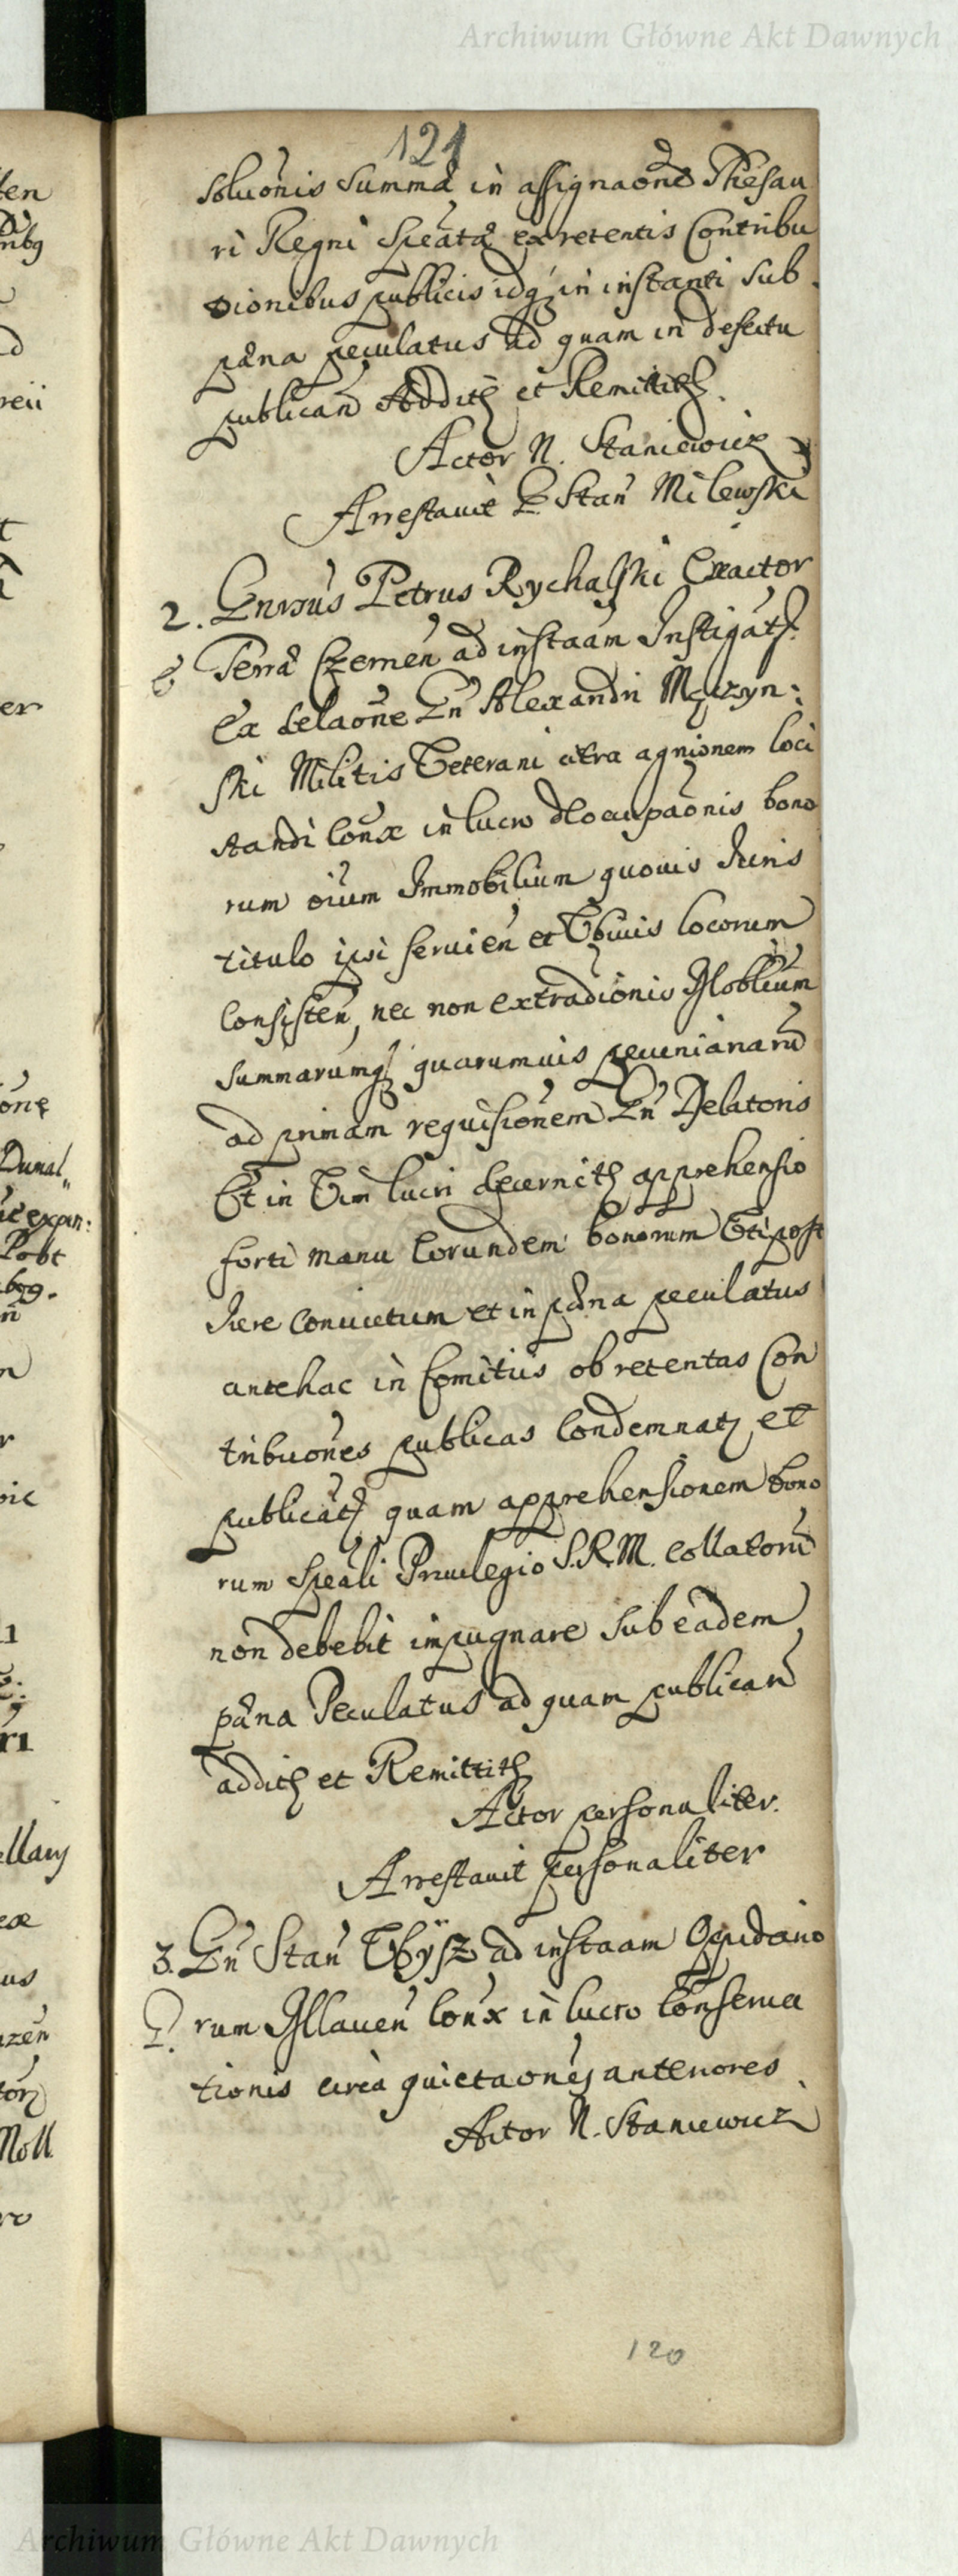 Archiwum Główne Akt Dawnych
121
soluōnis Summâ in assignaōne Thesau
ri Regni Speātâ ex retentis Contribu
tionibus publicis idq̃ in instanti sub
pœna peculatus ad quam in defectu
publicañ Additq et Remittitq.
Actor N. Staniewicz
Arrestavit G. Stañ Milewski
2. Gnrosus Petrus Rychalski Exactor
Terrâ Czernen ad instaām Instigatq.
Ex delaōne Gñ Alexandri Męczyn:
ski Militis Veterani citra agnionem loci
standi Conx in lucro dloccupaōnis bono
rum oium Immobilium quovis Iuris
titulo ipsi servieñ et Ubivis locorum
Consisteñ, nec non extradionis Mobilium
summarumq̃ quarumvis pecuniariarū
ad primam requisionem Gñ Delatoris
Et in Vim lucri decernitq apprehensio
forti manu Eorundem bonorum Uti post
Iure Convictum et in pœna peculatus
antehac in Comitiis ob retentas Con
tribuōnes publicas Condemnatq et
publicatq quam apprehensionem bono
rum Speāli Privilegio S.R.M. collatorū
non debebit impugnare sub eadem
pœna Peculatus ad quam publicañ
additq et Remittitq
Actor personaliter.
Arrestavit personaliter
3. Gñ Stañ Ubysz ad instaam Oppidano
rum Illaveñ Conx in lucro Conserva
tionis circa quietaōnes anteriores
Actor N. Staniewicz
120
Archiwum Główne Akt Dawnych